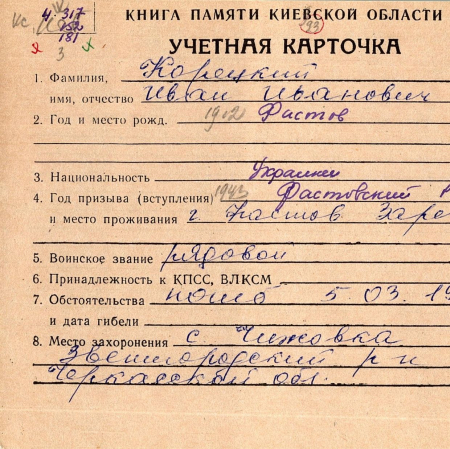 КНИГА ПАМЯТИ КИЕВСКОЙ ОБЛАСТИ
4. 317
152
181
3
193
УЧЕТНАЯ КАРТОЧКА
1. Фамилия, Корецкий
имя, отчество Иван Иванович
2. Год и место рожд. 1912 Фастов
3. Национальность Украинец
4. Год призыва (вступления) 1943 Фастовский Р
и место проживания г. Фастов Заре
5. Воинское звание рядовой
6. Принадлежность к КПСС, ВЛКСМ
7. Обстоятельства погиб 5.03.19
и дата гибели
8. Место захоронения с. Чижовка
Звенигородский р-н
Черкасской обл.